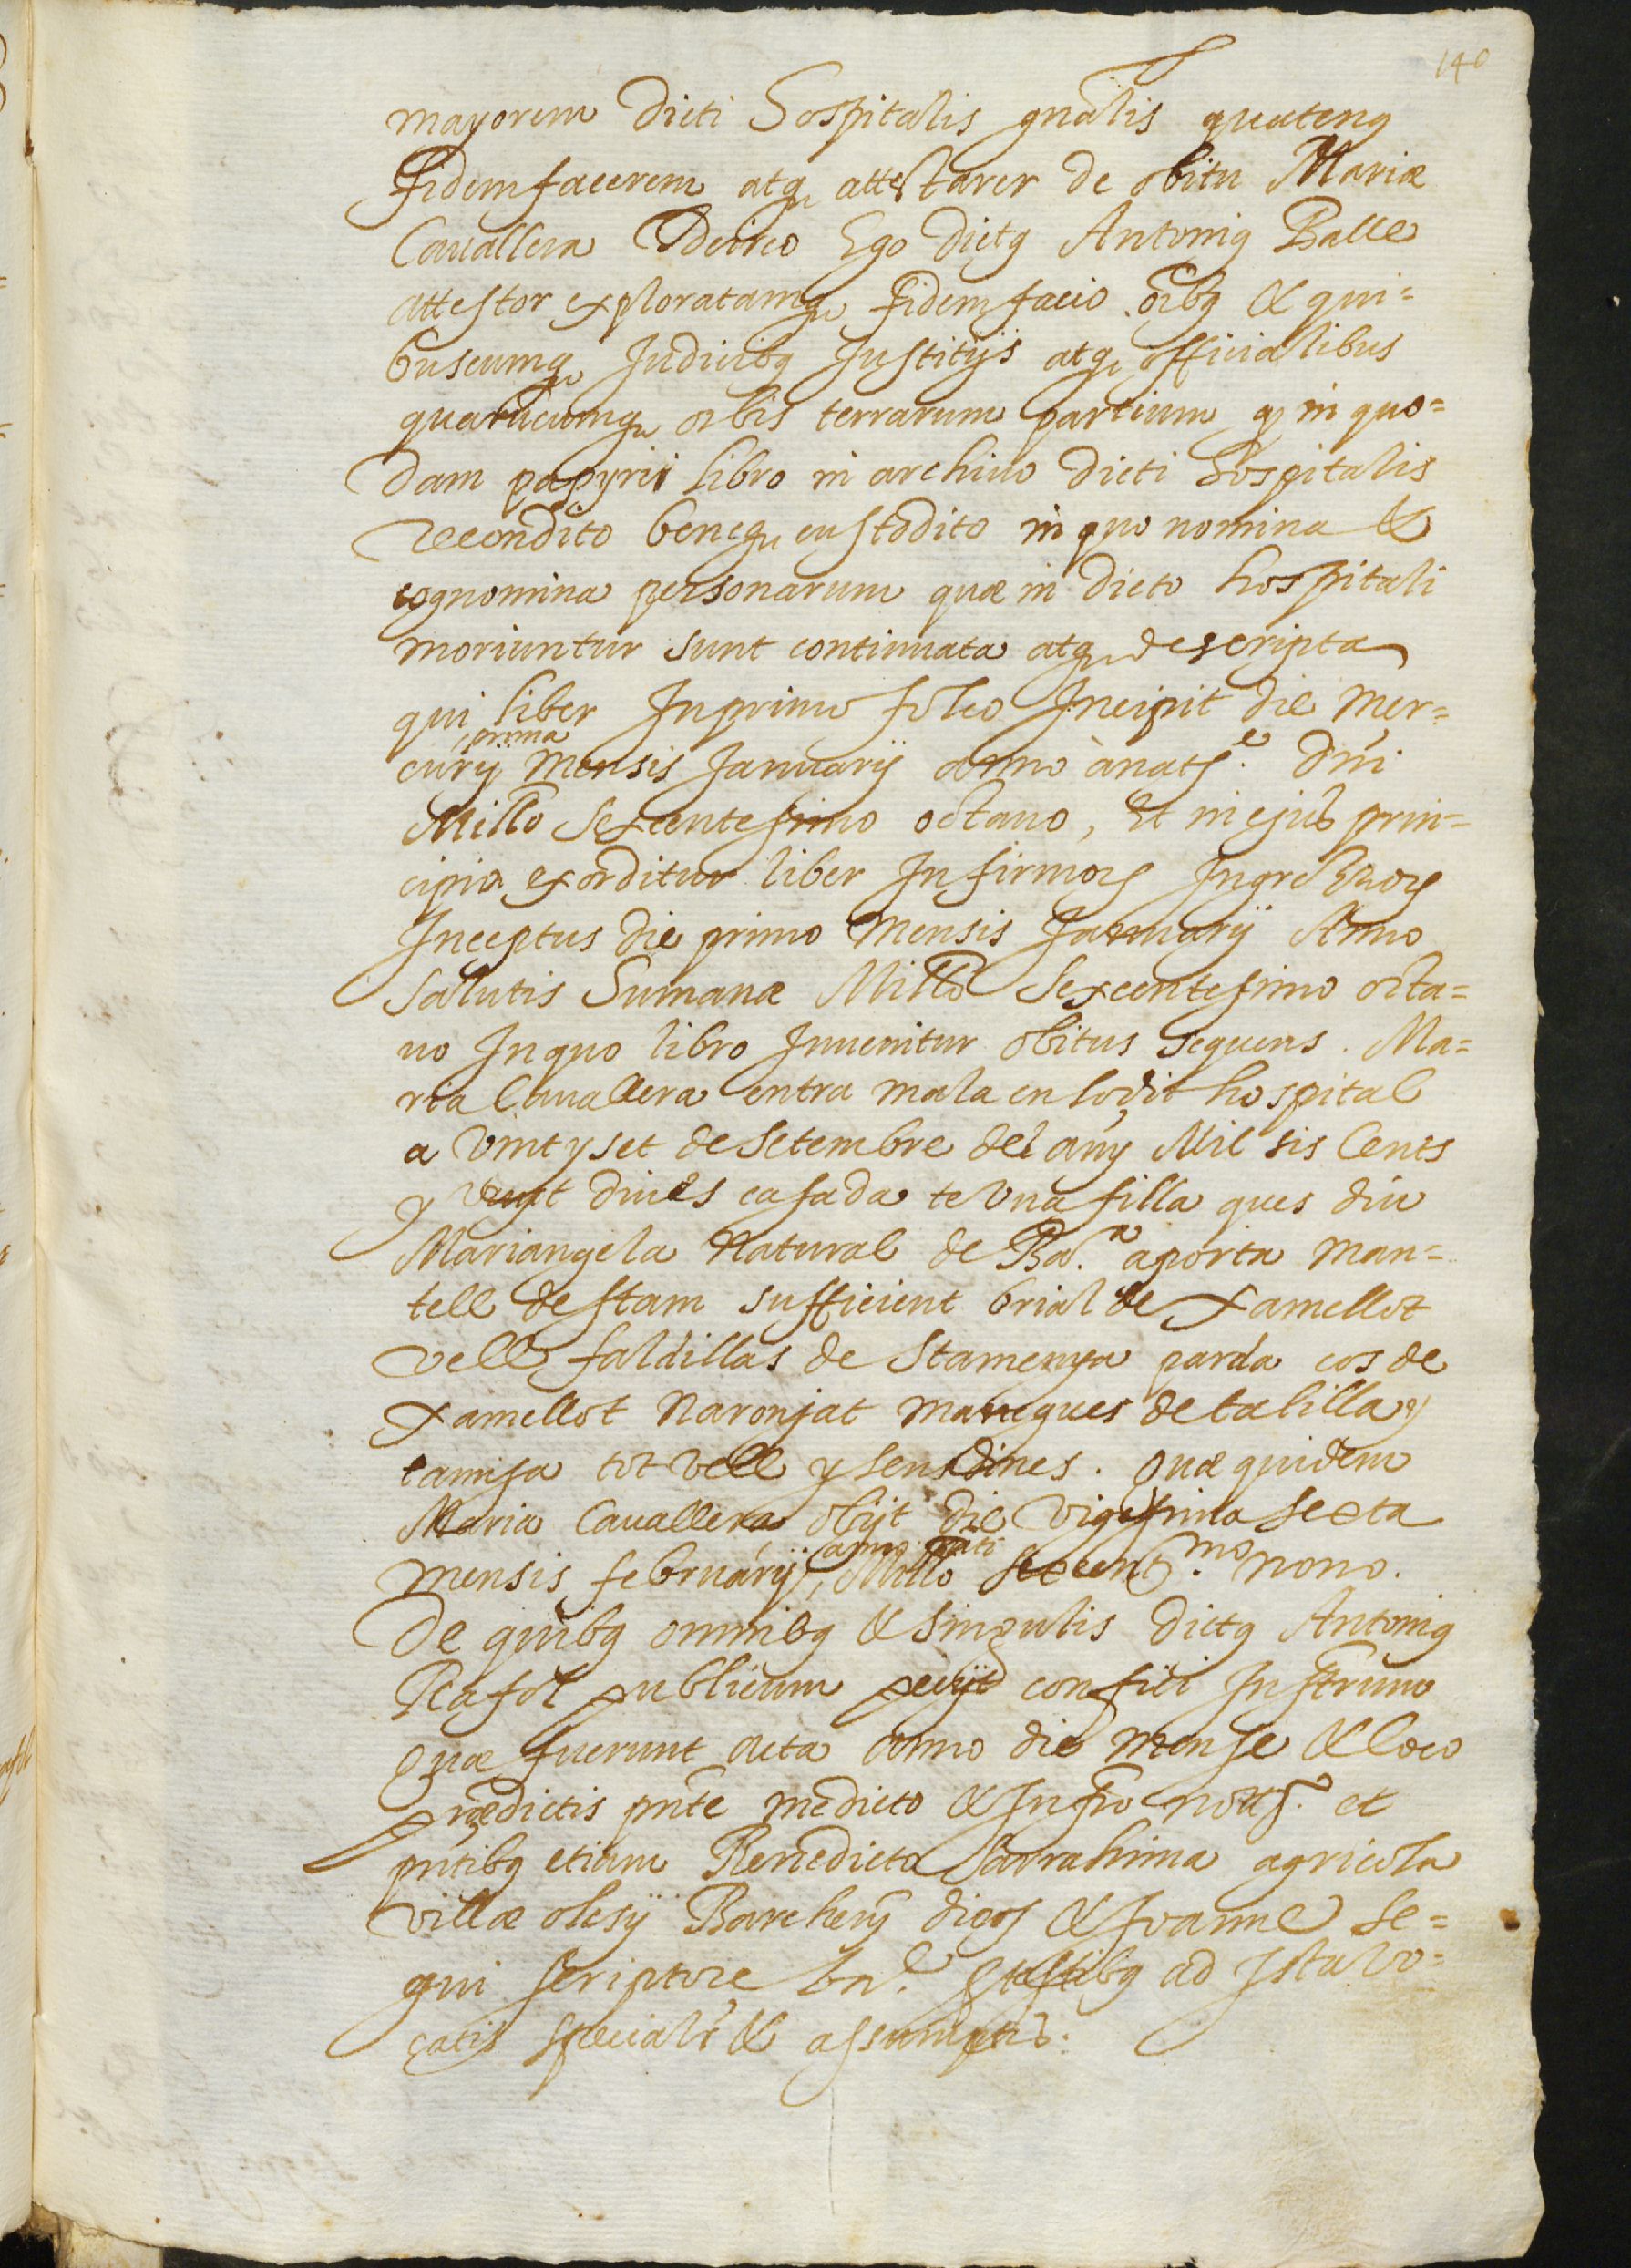 140
mayorem dicti Hospitalis gnalis quatenꝰ
fidem facerem atqꝫ attestarer de obitu Mariæ
Cauallera Idcirco Ego dictꝰ Antoniꝰ Batlle
attestor exploratamqꝫ fidem facio oibꝰ & qui=
buscumqꝫ Judicibꝰ Justitijs atqꝫ officialibus
quarucumqꝫ orbis terrarum partium q in quo=
dam papyrii libro in archiuo dicti Hospitalis
recondito beneqꝫ custodito in quo nomina &
cognomina personarum quæ in dicto hospitali
moriuntur sunt continuata atqꝫ descripta
qui liber In primo folio Incipit die Mer=
prima
curij mensis Januarij anno a natᵉ. Dñi
Millo sexcentesimo octauo, Et in ejus prin=
cipio exorditur liber Infirmoꝝ Ingressoꝝ
Inceptus die primo mensis Januarij Anno
Salutis Humanæ Millo Sexcentesimo octa=
uo In quo libro Inuenitur obitus sequens. Ma=
ria Cauallera entra mala en lo dit hospital
a vint y set de Setembre del any Mil sis Cents
y vuyt diu es casada te vna filla ques diu
Mariangela natural de Baᵃ. aporta man=
tell destam sufficient brial de xamellot
vell faldillas de stamenya parda cos de
xamellot naronjat manegues de talilla y
camisa tot vell y sens dines. Quæ quidem
Maria Cauallera obijt die vigesima sexta
anno nati
mensis februarij, Millo sexcentᵐᵒ. nono.
De quibꝰ omnibꝰ & singulis dictꝰ Antoniꝰ
Rafol publicum petijt confici Instrum
quæ fuerunt acta anno die mense & loco
prædictis pnte me dicto & Infro nott. et
pntibꝰ etiam Benedicto Sarrahima agricola
villæ olesij Barchen dioꝝ & Joanne Se=
gui scriptore bñᵉ. p testibꝰ ad Ista vo=
catis speciali & assumptis.